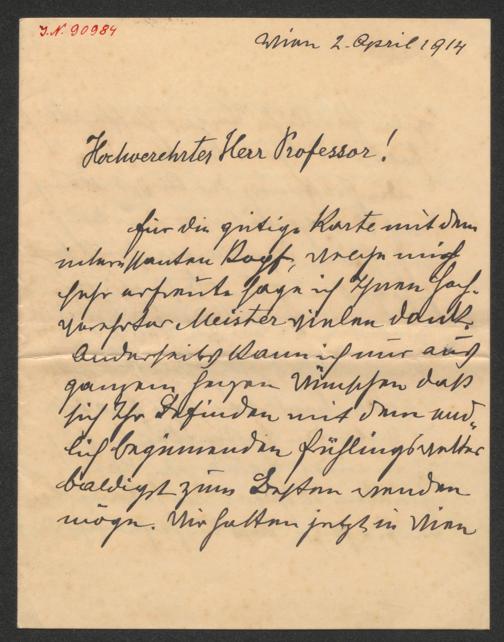 J.N. 90984
Wien 2. April 1914
Hochverehrter Herr Professor!
für die gütige Karte mit dem
interessanten Kopf, welche mich
sehr erfreute sage ich Ihnen hoch-
verehrter Meister vielen Dank.
Anderseits kann ich nur aus
ganzem Herzen wünschen daß
sich Ihr Befinden mit dem end-
lich beginnenden Frühlingswetter
baldigst zum Besten wenden
möge. Wir hatten jetzt in Wien